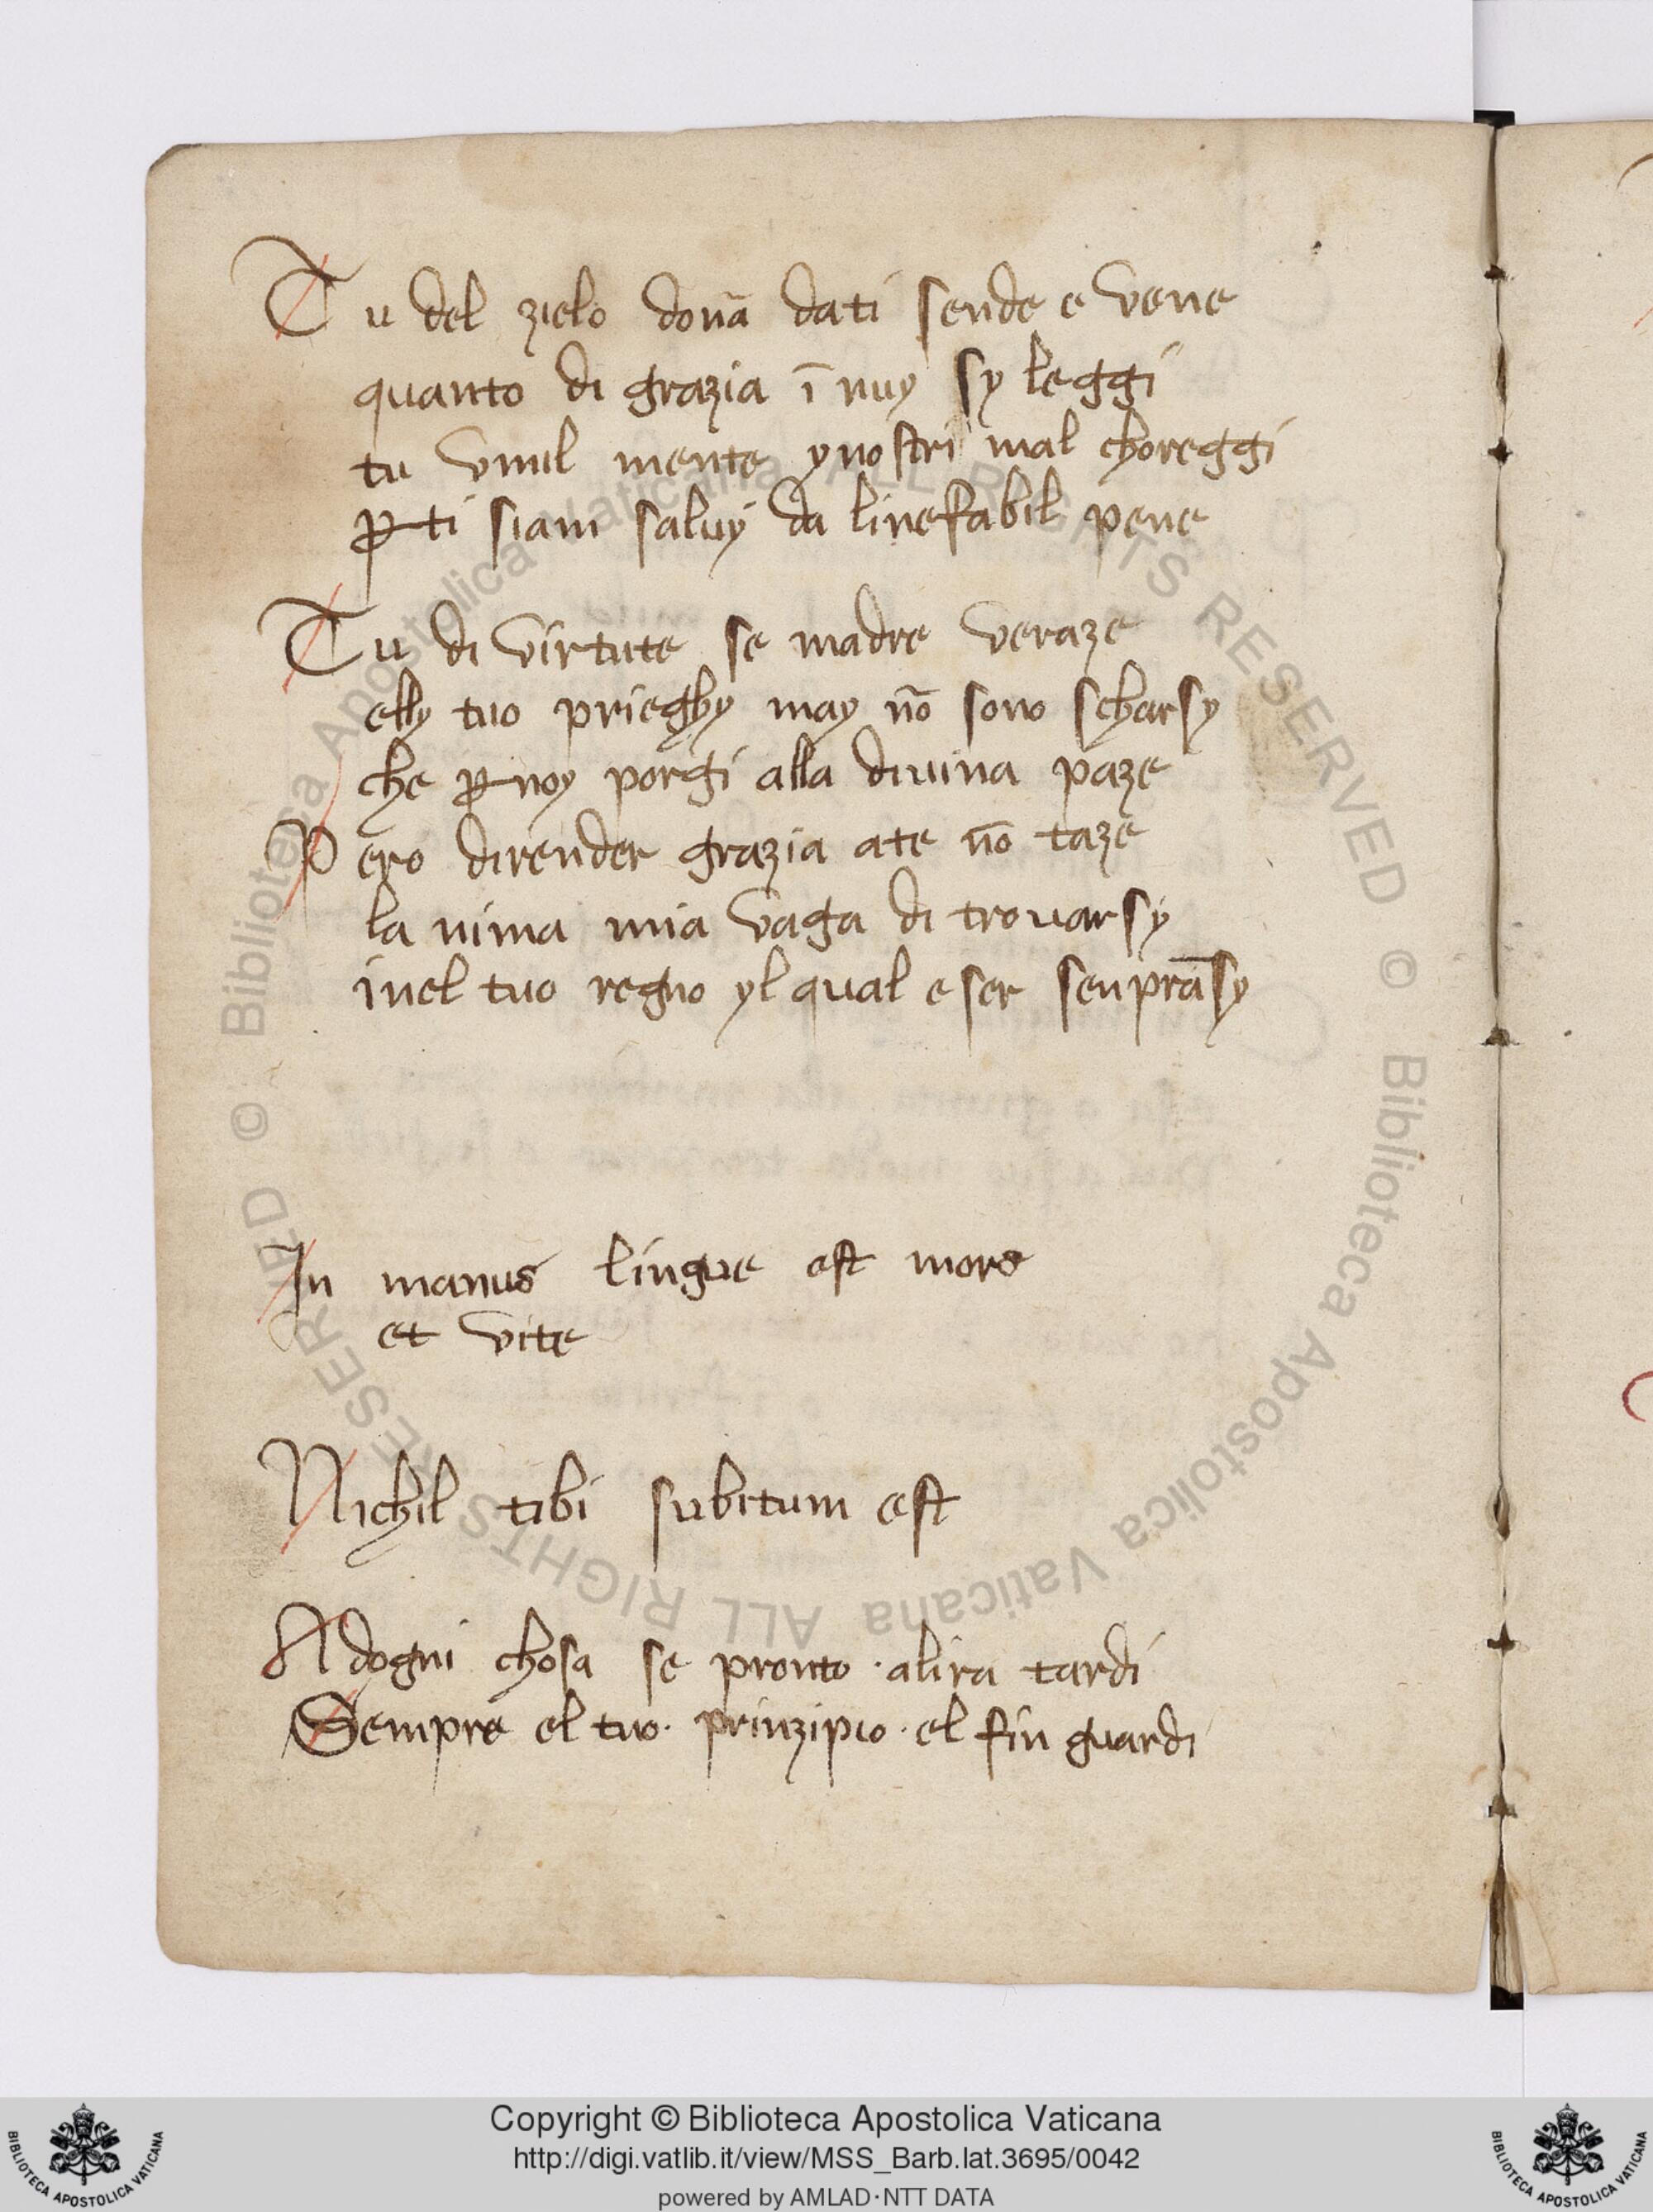 Tu del zielo donā dati sende e vene
quanto di grazia ī nuy sy leggi
tu vmil mente ynostri mal choreggi
ꝑ ti siam saluy da linefabil pene
Tu di virtute se madre veraze
elly tuo prieghy may nō sono scharsy
che ꝑ noy porgi alla diuina paze
Pero dirender grazia ate nō taze
la nima mia vaga di trouarsy
inel tuo regno yl qual eser senprāsy
In manus lingue est mors
et vite
Nichil tibi subitum est
Adogni chosa se pronto · alira tardi
Sempre el tuo · prinzipio · el fin guardi
© Biblioteca Apostolica Vaticana ALL RIGHTS RESERVED © Biblioteca Apostolica Vaticana ALL RIGHTS RESERVED
Copyright © Biblioteca Apostolica Vaticana
http://digi.vatlib.it/view/MSS_Barb.lat.3695/0042
powered by AMLAD·NTT DATA
BIBLIOTECA APOSTOLICA VATICANA
BIBLIOTECA APOSTOLICA VATICANA